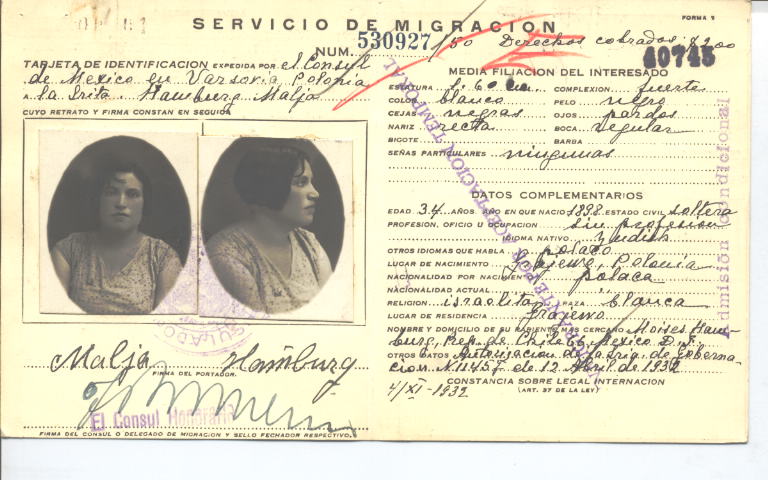 SERVICIO DE MIGRACION
FORMA 5
NUM. 530927/150 Derechos cobrados $2.00
40745
TARJETA DE IDENTIFICACION EXPEDIDA POR el Consul
de Mexico en Varsovia Polonia
A la Srita. Hamburg Malja
CUYO RETRATO Y FIRMA CONSTAN EN SEGUIDA
Malja Hamburg
FIRMA DEL PORTADOR.
El Consul Honorario
FIRMA DEL CONSUL O DELEGADO DE MIGRACION Y SELLO FECHADOR RESPECTIVO.
MEDIA FILIACION DEL INTERESADO
ESTATURA 1.60 COMPLEXION fuerte
COLOR blanco PELO negro
CEJAS negras OJOS pardos
NARIZ recta BOCA regular
BIGOTE BARBA
SEÑAS PARTICULARES ningunas
DATOS COMPLEMENTARIOS
EDAD 34 AÑOS AÑO EN QUE NACIO 1898 ESTADO CIVIL soltera
PROFESION, OFICIO U OCUPACION sin profesion
IDIOMA NATIVO Yudish
OTROS IDIOMAS QUE HABLA polaco
LUGAR DE NACIMIENTO Polonia
NACIONALIDAD POR NACIMIENTO polaca
NACIONALIDAD ACTUAL
RELIGION israelita RAZA blanca
LUGAR DE RESIDENCIA
NOMBRE Y DOMICILIO DE SU PARIENTE MAS CERCANO Moises Ham-
burg, Rep. de Chile 66, Mexico D.F.
OTROS DATOS Autorizacion de la Sria. de Goberna-
cion N. 11457 de 12 Abril de 1932
CONSTANCIA SOBRE LEGAL INTERNACION
(ART. 37 DE LA LEY)
4/XI-1932
Admisión condicional
INMIGRANTE POR ACEPTACION TEMPORAL